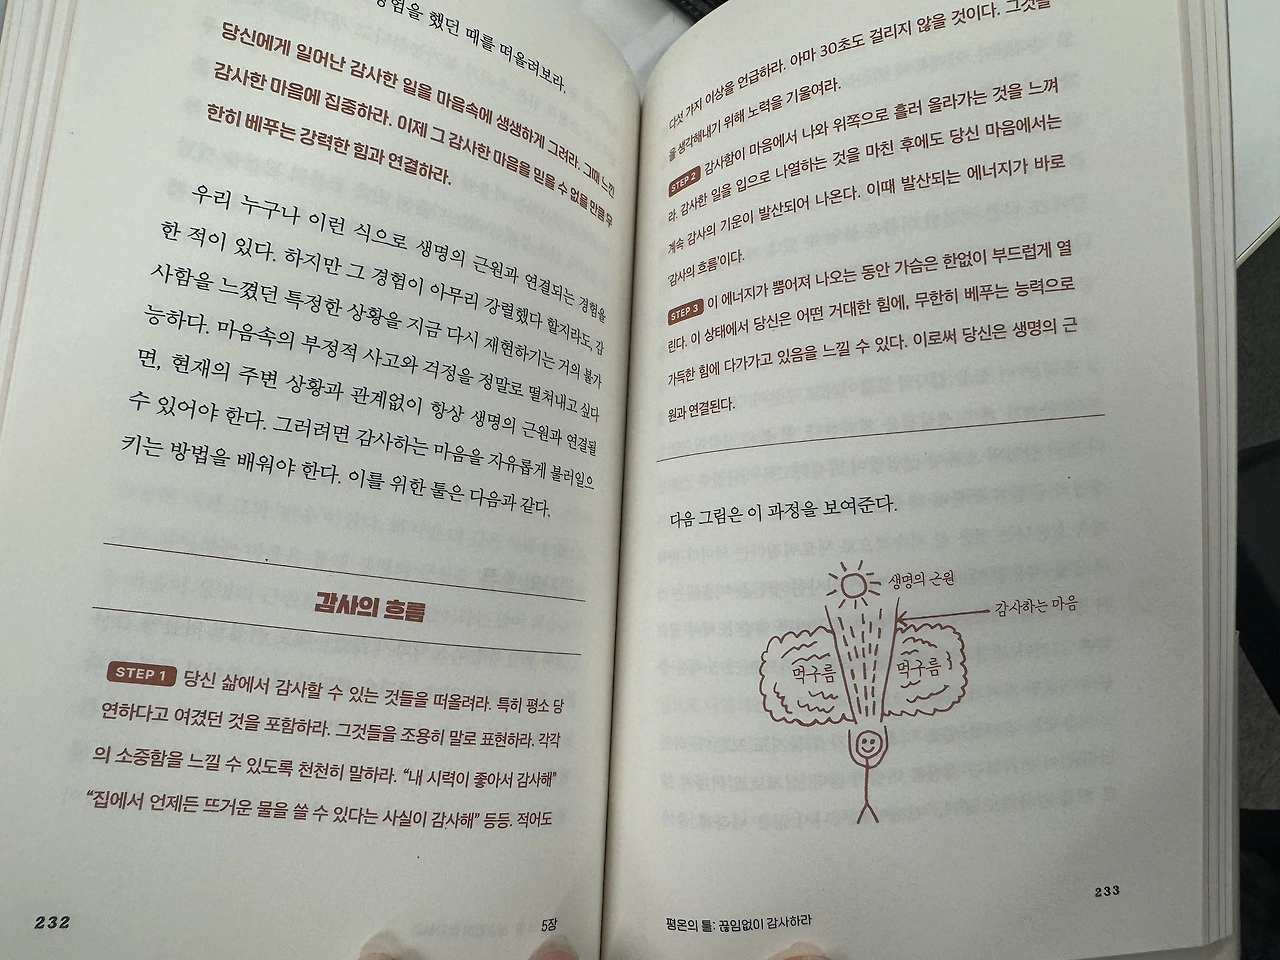 경험을 했던 때를 떠올려보라.
당신에게 일어난 감사한 일을 마음속에 생생하게 그려라. 그때 느낀
감사한 마음에 집중하라. 이제 그 감사한 마음을 믿을 수 없을 만큼 무
한히 베푸는 강력한 힘과 연결하라.
우리 누구나 이런 식으로 생명의 근원과 연결되는 경험을
한 적이 있다. 하지만 그 경험이 아무리 강렬했다 할지라도, 감
사함을 느꼈던 특정한 상황을 지금 다시 재현하기는 거의 불가
능하다. 마음속의 부정적 사고와 걱정을 정말로 떨쳐내고 싶다
면, 현재의 주변 상황과 관계없이 항상 생명의 근원과 연결될
수 있어야 한다. 그러려면 감사하는 마음을 자유롭게 불러일으
키는 방법을 배워야 한다. 이를 위한 툴은 다음과 같다.
감사의 흐름
STEP 1 당신 삶에서 감사할 수 있는 것들을 떠올려라. 특히 평소 당
연하다고 여겼던 것을 포함하라. 그것들을 조용히 말로 표현하라. 각각
의 소중함을 느낄 수 있도록 천천히 말하라. “내 시력이 좋아서 감사해”
“집에서 언제든 뜨거운 물을 쓸 수 있다는 사실이 감사해” 등등. 적어도
232
5장
다섯 가지 이상을 언급하라. 아마 30초도 걸리지 않을 것이다. 그것들
을 생각해내기 위해 노력을 기울여라.
STEP 2 감사함이 마음에서 나와 위쪽으로 흘러 올라가는 것을 느껴
라. 감사한 일을 입으로 나열하는 것을 마친 후에도 당신 마음에서는
계속 감사의 기운이 발산되어 나온다. 이때 발산되는 에너지가 바로
‘감사의 흐름’이다.
STEP 3 이 에너지가 뿜어져 나오는 동안 가슴은 한없이 부드럽게 열
린다. 이 상태에서 당신은 어떤 거대한 힘에, 무한히 베푸는 능력으로
가득한 힘에 다가가고 있음을 느낄 수 있다. 이로써 당신은 생명의 근
원과 연결된다.
다음 그림은 이 과정을 보여준다.
생명의 근원
감사하는 마음
먹구름
먹구름
233
평온의 툴: 끊임없이 감사하라